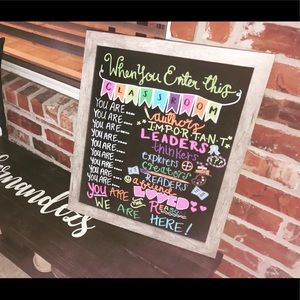 When You Enter this
CLASSROOM
YOU ARE.... authors
YOU ARE.... IMPORTANT
YOU ARE.... LEADERS
YOU ARE.... thinkers
YOU ARE.... explorers
YOU ARE.... creators
YOU ARE.... READERS
YOU ARE.... a friend
YOU ARE LOVED
YOU ARE the REASON
WE ARE HERE!
ernandez